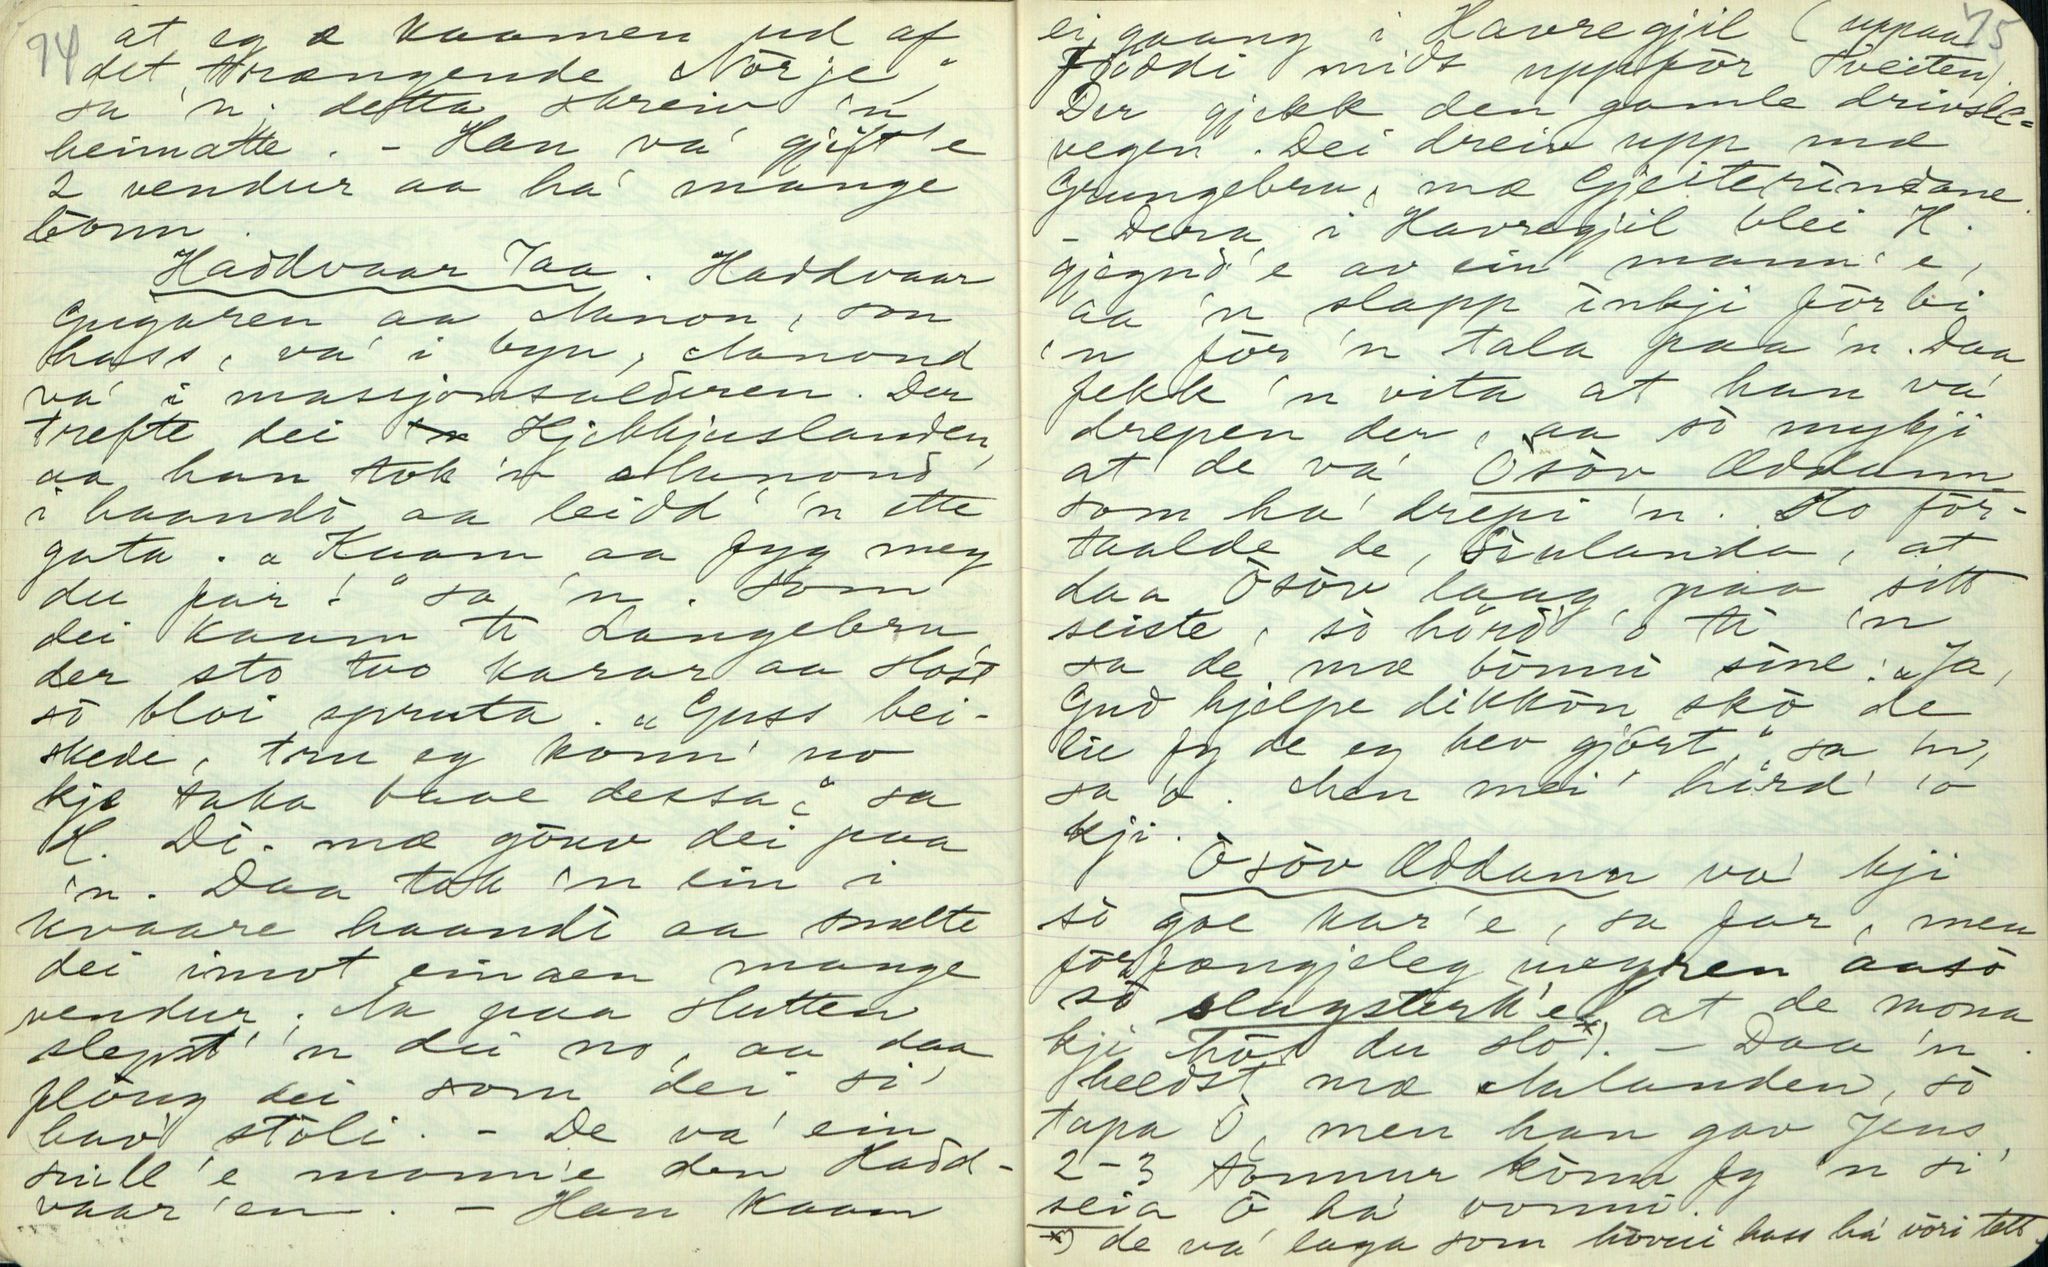 94
at eg e kaamen ud af
det "trængende Nörje",
sa 'n; detta skreiv 'n
heimatte. - Han va' gjift'e
2 vendur aa ha' mange
bonn.
Haddvaar Taa. Haddvaar
Grigaren aa Manon, son
hass, va' i byn, Manond
va' i massjonsalderen. Der
trefte dei Hjekkjuslanden,
aa han tok 'n Manond
i haandi aa leidd' 'n ette
gata. "Kaam aa fyg meg
du far!" sa 'n. Som
dei kaam ti Langebru,
der sto tvo karar aa slost
so bloi spruta. "Guss bei-
skede, tru eg konn' no
kje taka baae dessa," sa
H. Di-mæ gönv dei paa
'n. Daa tok 'n ein i
kvaare haandi aa smelte
dei imot einaen mange
vendur. Aa paa slutten
slepst' 'n dei no, aa daa
flöug dei som dei si'
hav' stoli. - De va' ein
snill'e mann'e den Hadd-
vaar'en. - Han kaam
75
ei gaang i Havregjil (uppaa
Flöddi mids uppför Sveiten).
Der gjekk den gamle drivsle=
vegen. Dei dreiv upp mæ
Grungebru, mæ Gjeiterindane.
- Dera i Havregjil blei H.
gjegnd'e av ein mann'e,
aa 'n slapp inkji förbi
'n för 'n tala paa 'n. Daa
fekk 'n vita at han va'
drepen der, aa so mykji
at de va' Òsöv Øddann
som ha' drepi 'n. Ho för-
taalde de, , at
daa Òsöv laag paa sitt
seiste, so hörd' 'o ti 'n
sa de mæ bönni sine: "Ja,
Gud hjelpe dikkön sko de
lie fy de eg hev gjort," sa 'n,
sa 'o. Men mei' hörd' 'o
kji.
Òsöv Øddann va' kji
so goe kar'e, sa far, men
förfængjeleg aaso
so slagsterk'e at de mona
kji hör du slo*). - Daa 'n
heldst mæ Mulanden, so
tapa Ò, men han gav Jens
2-3 tonnur könn fy 'n si'
seia Ò ha' vonni.
*) de va' laga som hövui hass ha' vöri tett.